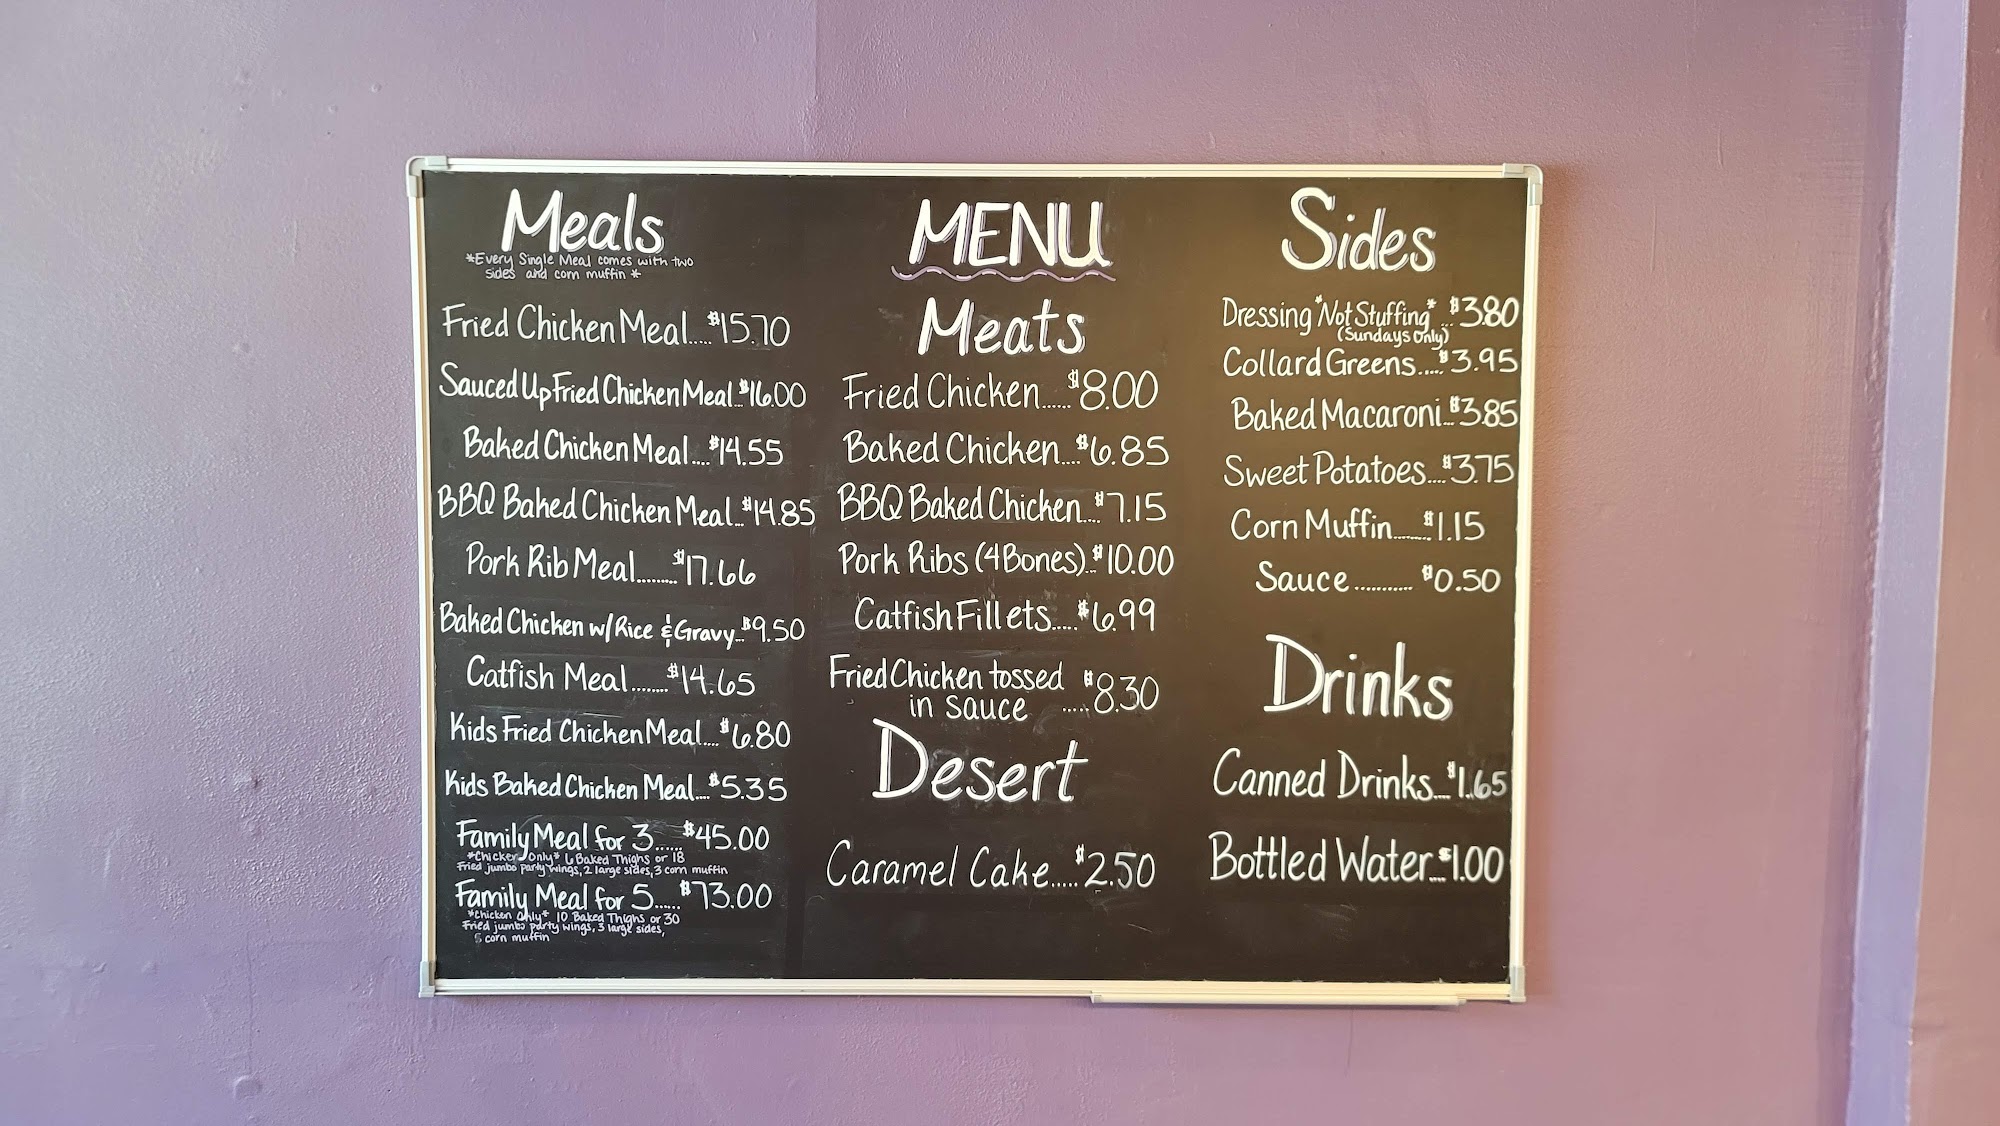 Meals
*Every Single Meal comes with two
sides and corn muffin *
Fried Chicken Meal.....$15.70
Sauced Up Fried Chicken Meal..$16.00
Baked Chicken Meal....$14.55
BBQ Baked Chicken Meal..$14.85
Pork Rib Meal.........$17.66
Baked Chicken w/Rice & Gravy..$9.50
Catfish Meal........$14.65
Kids Fried Chicken Meal....$6.80
Kids Baked Chicken Meal....$5.35
Family Meal for 3......$45.00
*Chicken Only* 6 Baked Thighs or 18
Fried jumbo party wings, 2 large sides, 3 corn muffin
Family Meal for 5......$73.00
*Chicken Only* 10 Baked Thighs or 30
Fried jumbo party wings, 3 large sides,
5 corn muffin
MENU
Meats
Fried Chicken......$8.00
Baked Chicken....$6.85
BBQ Baked Chicken...$7.15
Pork Ribs (4 Bones)..$10.00
Catfish Fillets.....$6.99
Fried Chicken tossed
in sauce .....$8.30
Desert
Caramel Cake.....$2.50
Sides
Dressing *Not Stuffing*...$3.80
(Sundays Only)
Collard Greens.....$3.95
Baked Macaroni...$3.85
Sweet Potatoes....$3.75
Corn Muffin........$1.15
Sauce ........... $0.50
Drinks
Canned Drinks...$1.65
Bottled Water...$1.00